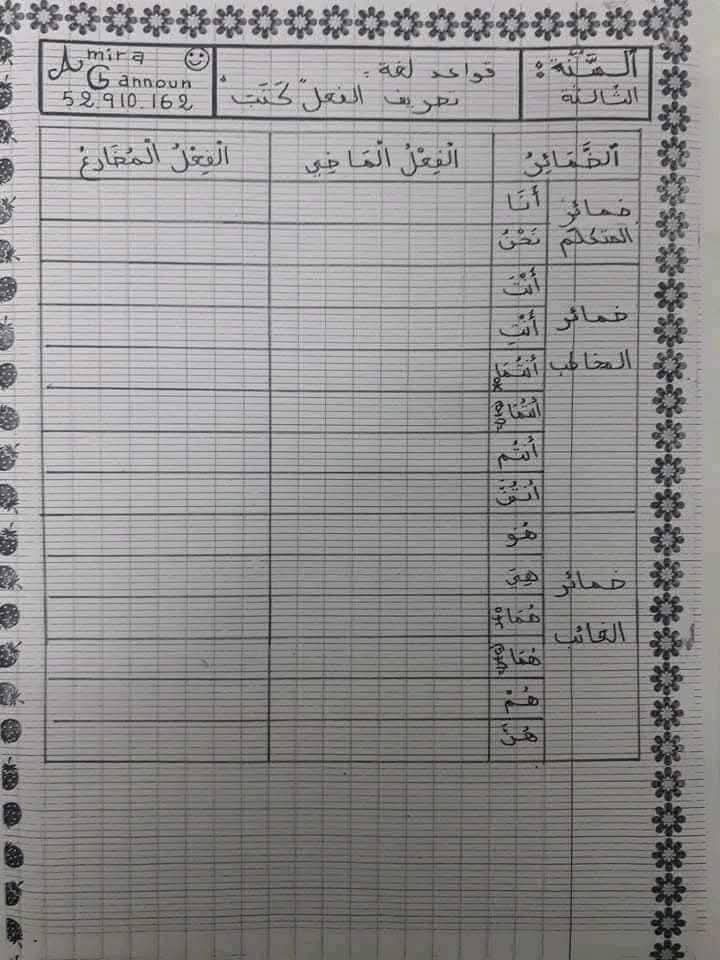 السَّنَة:
الثالثة
قواعد لغة:
تصريف الفعل "كَتَبَ"
Amira
Gannoun
52.910.162
الضَّمَائِرُ الْفِعْلُ الْمَاضِي الْفِعْلُ الْمُضَارِعُ
ضمائر المتكلم
أَنَا
نَحْنُ
ضمائر المخاطب
أَنْتَ
أَنْتِ
أَنْتُمَا
أَنْتُمَا
أَنْتُم
أَنْتُنَّ
ضمائر الغائب
هُوَ
هِيَ
هُمَا
هُمَا
هُمْ
هُنَّ